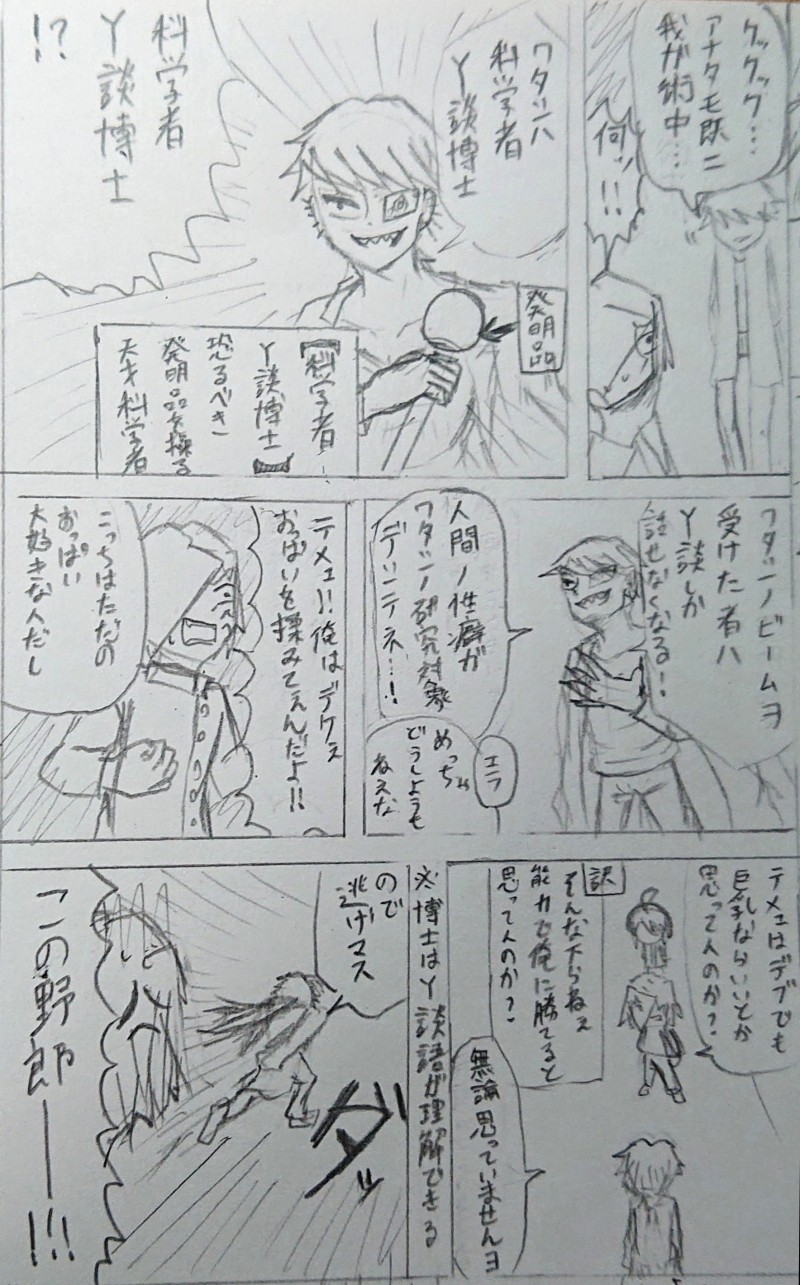 クックック…
アナタモ既ニ
我が術中…
何ッ!!
ワタシハ
科学者
Y談博士
発明品
【科学者
Y談博士】
恐るべき
発明品を操る
天才科学者
科学者
Y談博士
!?
ワタシノビームヲ
受けた者ハ
Y談しか
話せなくなる!
人間ノ性癖が
ワタシノ研究対象
デシテネ…!
エラ
めっちゃ
どうしようも
ねえな
テメェ!!俺はデケェ
おっぱいを揉みてぇんだよ!!
こっちはただの
おっぱい
大好きな人だし
テメェはデブでも
巨乳ならいいとか
思ってんのか?
訳
そんな下らねぇ
能力で俺に勝てると
思ってんのか?
無論思っていませんヨ
※博士はY談語が理解できる
ので
逃げマス
ダッ
この野郎――!!!